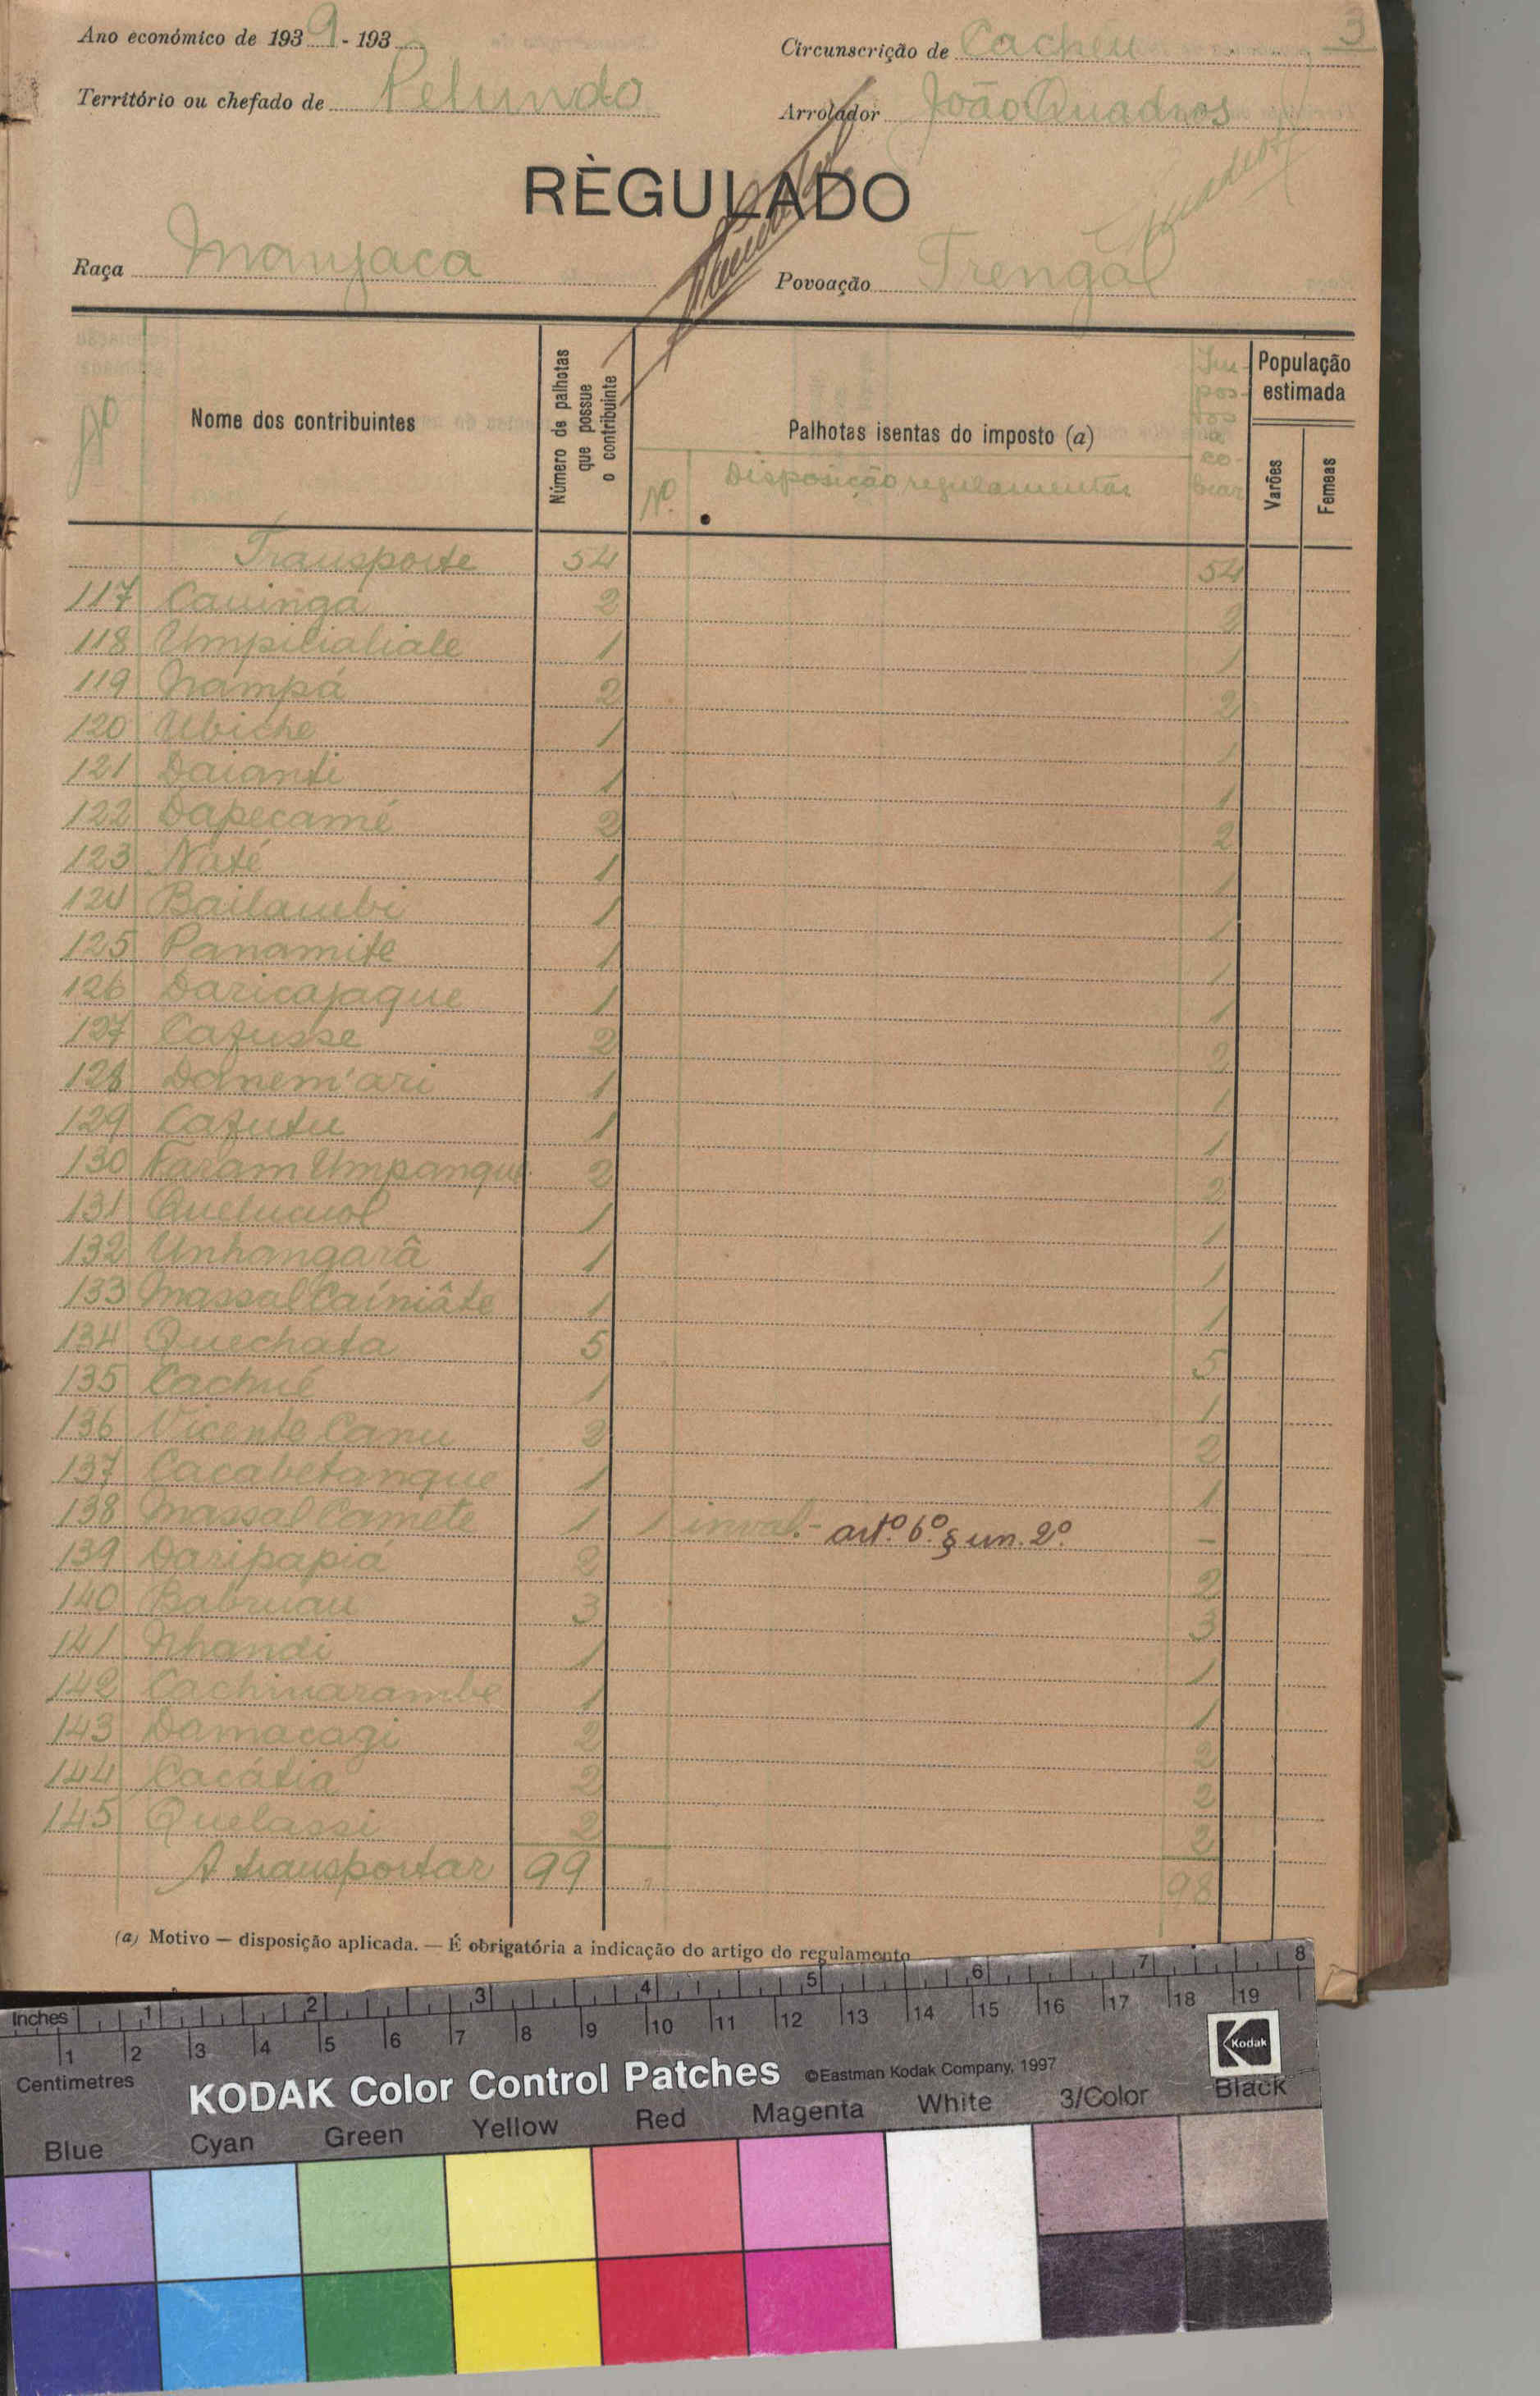 3
Ano económico de 1939 - 193
Circunscrição de Cacheu
Território ou chefado de Pelundo
Arrolador João Quadros
RÈGULADO
Quadros
Raça Manjaca
Povoação Trengal
Nº
Nome dos contribuintes
Número de palhotas que possue o contribuinte
Palhotas isentas do imposto (a)
Nº Disposição regulamentar
Impostos a cobrar
População estimada
Varões
Femeas
Transporte 54 54
117 Cauingá 2 2
118 Umpilialiale 1 1
119 Nampá 2 2
120 Ubiche 1 1
121 Daianti 1 1
122 Dapecamé 2 2
123 Naté 1 1
124 Bailambi 1 1
125 Panamite 1 1
126 Daricajaque 1 1
127 Cafusse 2 2
128 Danem'ari 1 1
129 Cafutu 1 1
130 Faram Umpanque 2 2
131 Quelucuol 1 1
132 Unhangarâ 1 1
133 Massal Cainiâte 1 1
134 Quechata 5 5
135 Cachué 1 1
136 Vicente Canu 2 2
137 Cacabetanque 1 1
138 Massal Camete 1 1 inval.- artº. 6º. § un. 2º -
139 Daripapiá 2 2
140 Babruau 3 3
141 Nhandi 1 1
142 Cachinarambe 1 1
143 Damacagi 2 2
144 Cacátia 2 2
145 Quelassi 2 2
A transportar 99 98
(a) Motivo — disposição aplicada. — É obrigatória a indicação do artigo do regulamento
Inches 1 2 3 4 5 6 7 8
1 2 3 4 5 6 7 8 9 10 11 12 13 14 15 16 17 18 19
Centimetres
KODAK Color Control Patches ©Eastman Kodak Company, 1997
Kodak
Blue Cyan Green Yellow Red Magenta White 3/Color Black